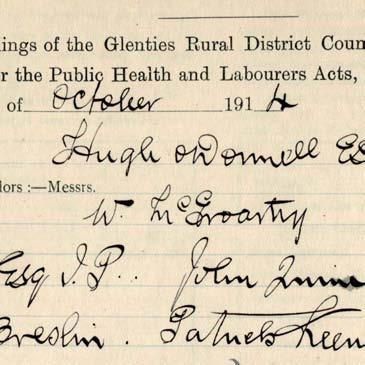 ings of the Glenties Rural District Coun
r the Public Health and Labourers Acts,
of October 1914
Hugh O'Donnell Es
lors :—Messrs.
W. McGroarty
Esq J.P. John Quinn
Breslin. Patrick Keen